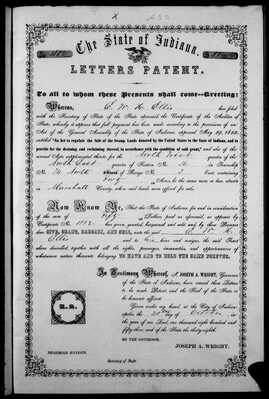 The State of Indiana.
LETTERS PATENT.
To all to whom these Presents shall come—Greeting:
Whereas, C. W. H. Ellis has filed
with the Secretary of State of the State aforesaid the Certificate of the Auditor of
State, whereby it appears that full payment has been made according to the provisions of an
Act of the General Assembly of the State of Indiana, approved May 29, 1852,
entitled "An Act to regulate the Sale of the Swamp Lands donated by the United States to the State of Indiana, and to
provide for the draining and reclaiming thereof, in accordance with the condition of said grant," and acts of the
annual Acts supplemental thereto, for the North West quarter of the
South East quarter of Section No. in Township
No. North of Range No. East containing
forty Acres, be the same more or less, situate
in Marshall County, when said land was offered for sale.
Now Know Ye, That the State of Indiana for and in consideration
of the sum of fifty Dollars paid as aforesaid, as appears by
Certificate No. has given, granted, bargained and sold, and by these Presents
does GIVE, GRANT, BARGAIN, AND SELL, unto the said C. W. H.
Ellis and to heirs and assigns, the said Tract
above described, together with all the rights, privileges, immunities, and appurtenances of
whatsoever nature thereunto belonging TO HAVE AND TO HOLD THE SAME FOREVER.
In Testimony Whereof, I, JOSEPH A. WRIGHT, Governor
of the State of Indiana, have caused these Letters
to be made Patent and the Seal of the State to
be hereunto affixed.
Given under my hand, at the City of Indianapolis
the day of October in
the year of our Lord, one thousand eight hundred and
fifty and of the State the thirty-eighth.
L.S.
BY THE GOVERNOR,
JOSEPH A. WRIGHT.
Secretary of State